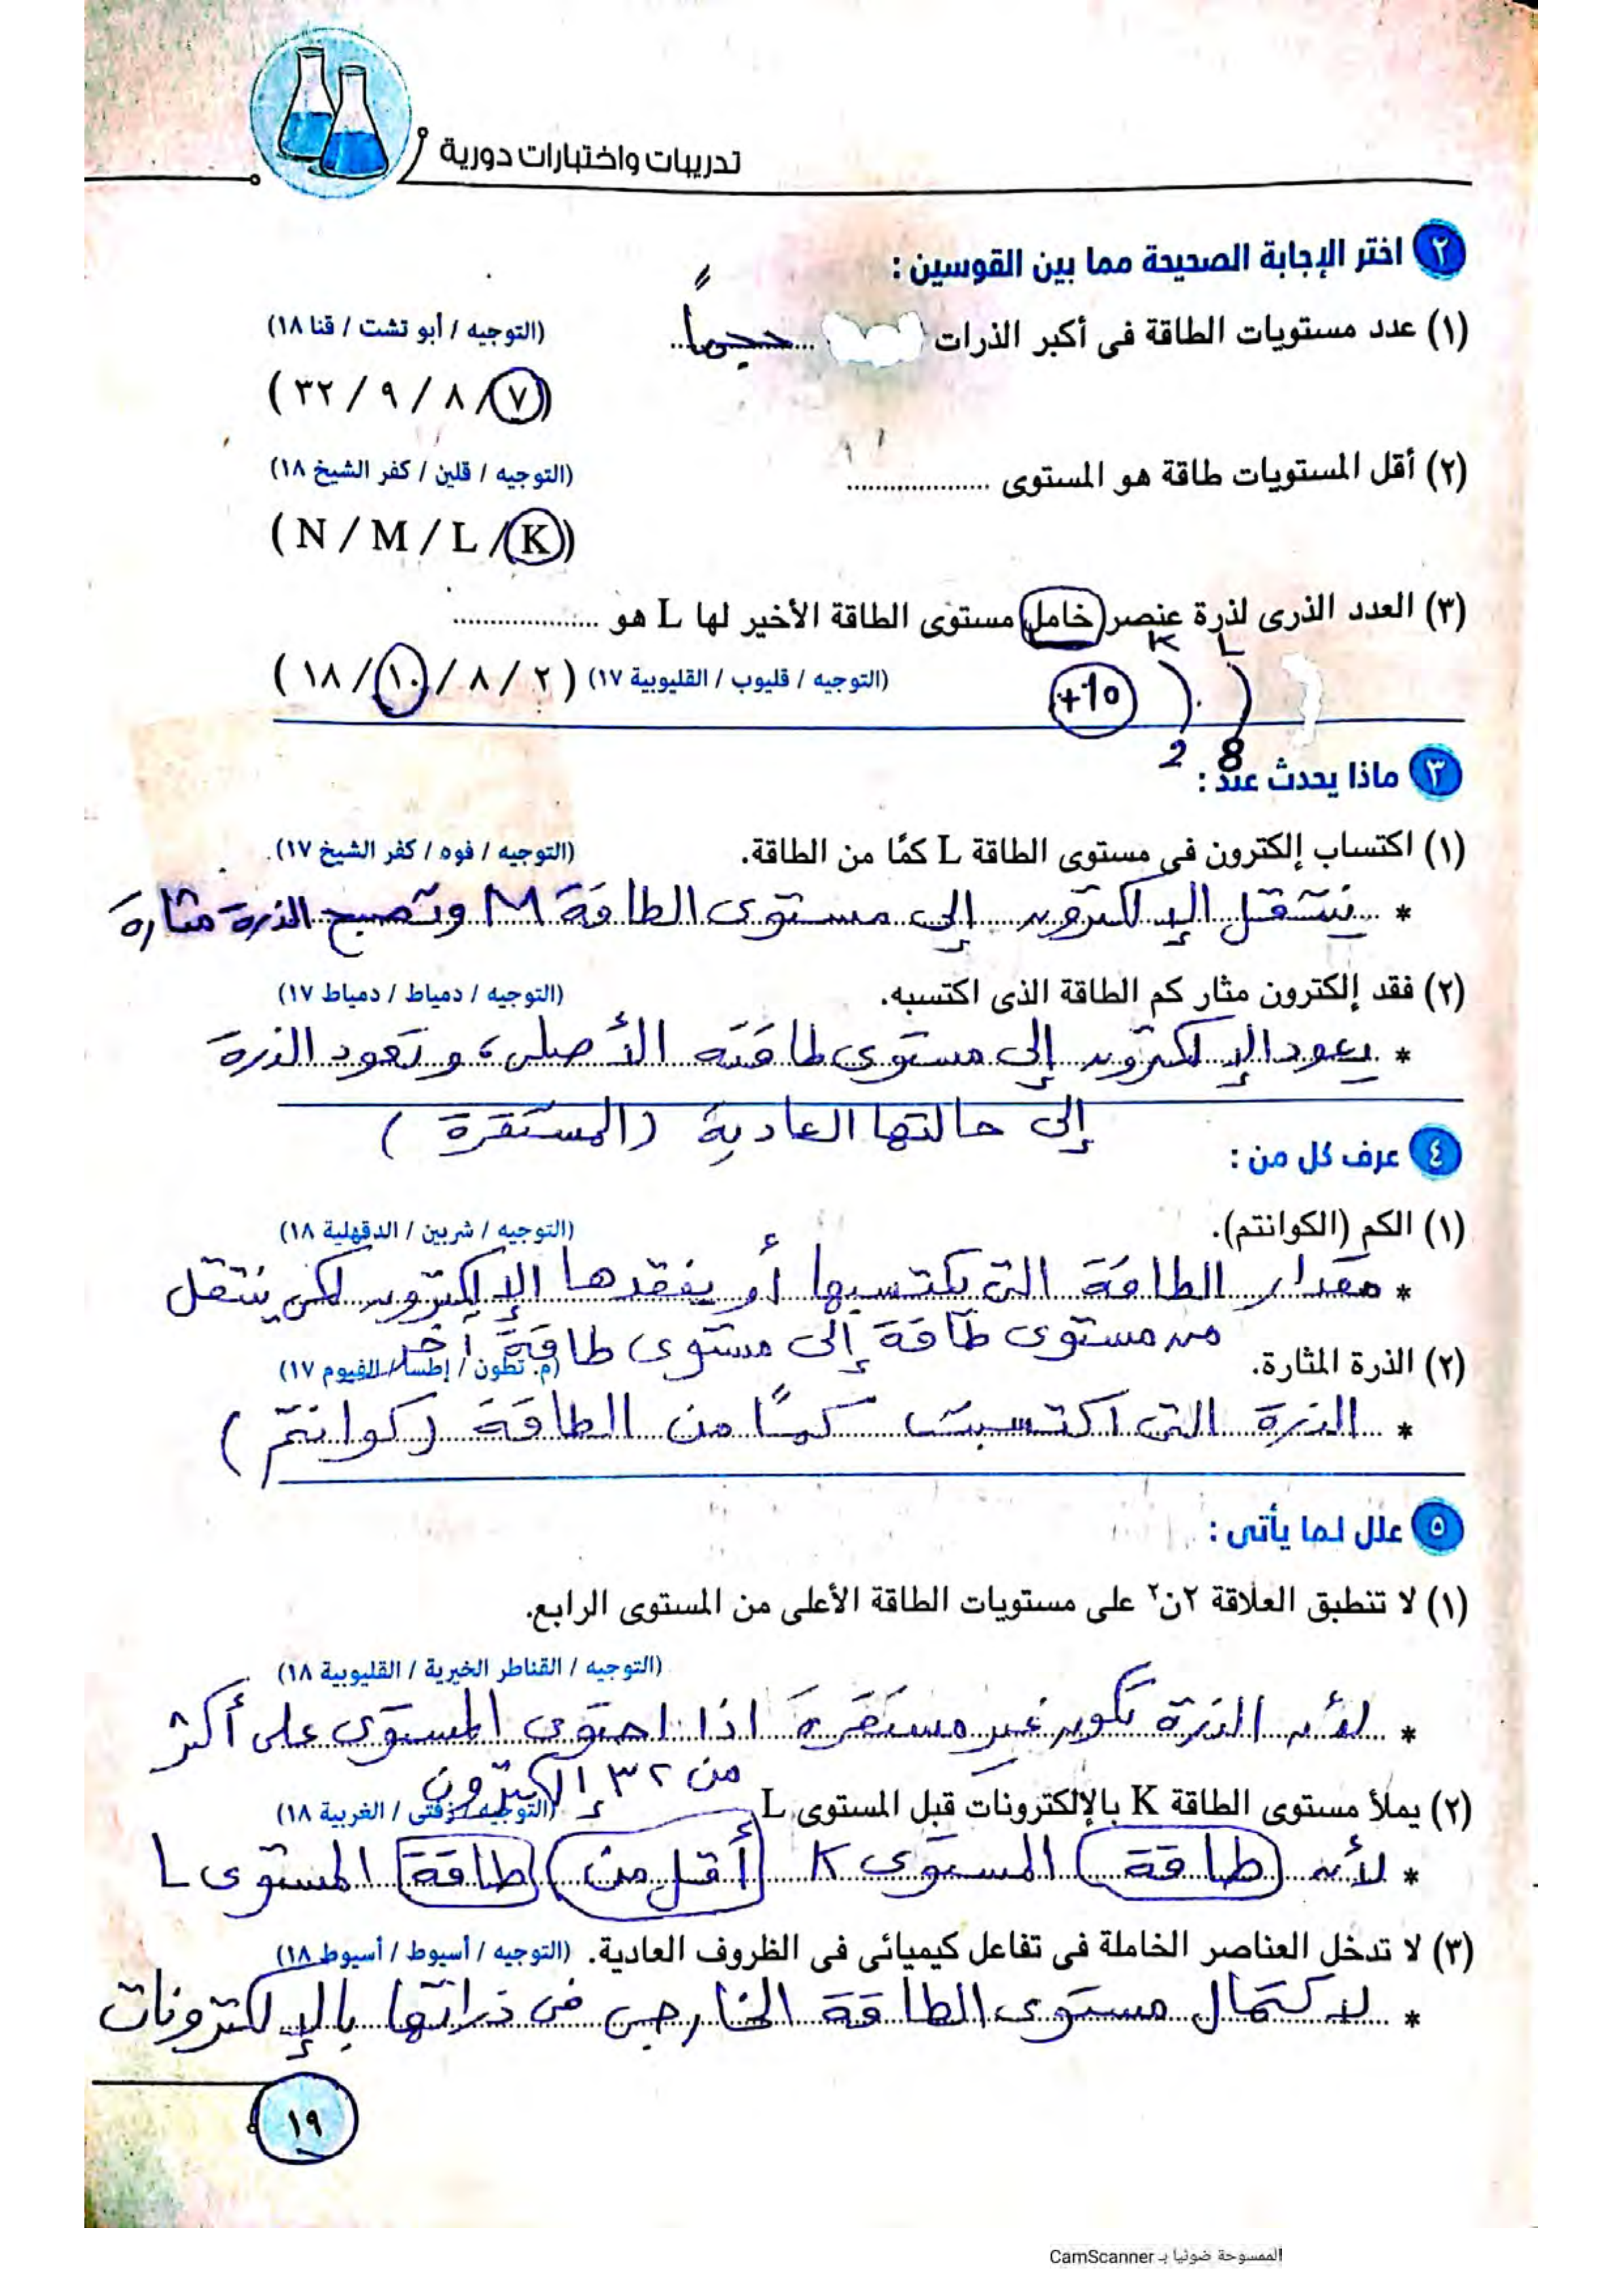 تدريبات واختبارات دورية
٢ اختر الإجابة الصحيحة مما بين القوسين :
(١) عدد مستويات الطاقة فى أكبر الذرات حجمًا (التوجيه / أبو تشت / قنا ١٨)
(٧ / ٨ / ٩ / ٣٢)
(٢) أقل المستويات طاقة هو المستوى .................. (التوجيه / قلين / كفر الشيخ ١٨)
(N / M / L / K)
(٣) العدد الذرى لذرة عنصر خامل مستوى الطاقة الأخير لها L هو ..................
K L
(٢ / ٨ / ١٠ / ١٨) (التوجيه / قليوب / القليوبية ١٧) +10
2 8
٣ ماذا يحدث عند :
(١) اكتساب إلكترون فى مستوى الطاقة L كمًا من الطاقة. (التوجيه / فوه / كفر الشيخ ١٧)
* ينتقل الإلكترون إلى مستوى الطاقة M وتصبح الذرة مثارة
(٢) فقد إلكترون مثار كم الطاقة الذى اكتسبه. (التوجيه / دمياط / دمياط ١٧)
* يعود الإلكترون إلى مستوى طاقته الأصلى، وتعود الذرة
إلى حالتها العادية (المستقرة)
٤ عرف كل من :
(١) الكم (الكوانتم). (التوجيه / شربين / الدقهلية ١٨)
* مقدار الطاقة التى يكتسبها أو يفقدها الإلكترون لكى ينتقل
من مستوى طاقة إلى مستوى طاقة آخر
(٢) الذرة المثارة. (م. تطون / إطسا / الفيوم ١٧)
* الذرة التى اكتسبت كمًا من الطاقة (كوانتم)
٥ علل لما يأتى :
(١) لا تنطبق العلاقة ٢ن٢ على مستويات الطاقة الأعلى من المستوى الرابع.
(التوجيه / القناطر الخيرية / القليوبية ١٨)
* لأن الذرة تكون غير مستقرة اذا احتوى المستوى على أكثر
من ٣٢ إلكترون
(٢) يملأ مستوى الطاقة K بالإلكترونات قبل المستوى L. (التوجيه / زفتى / الغربية ١٨)
* لأن طاقة المستوى K أقل من طاقة المستوى L
(٣) لا تدخل العناصر الخاملة فى تفاعل كيميائى فى الظروف العادية. (التوجيه / أسيوط / أسيوط ١٨)
* لاكتمال مستوى الطاقة الخارجى فى ذراتها بالإلكترونات
١٩
الممسوحة ضوئيا بـ CamScanner